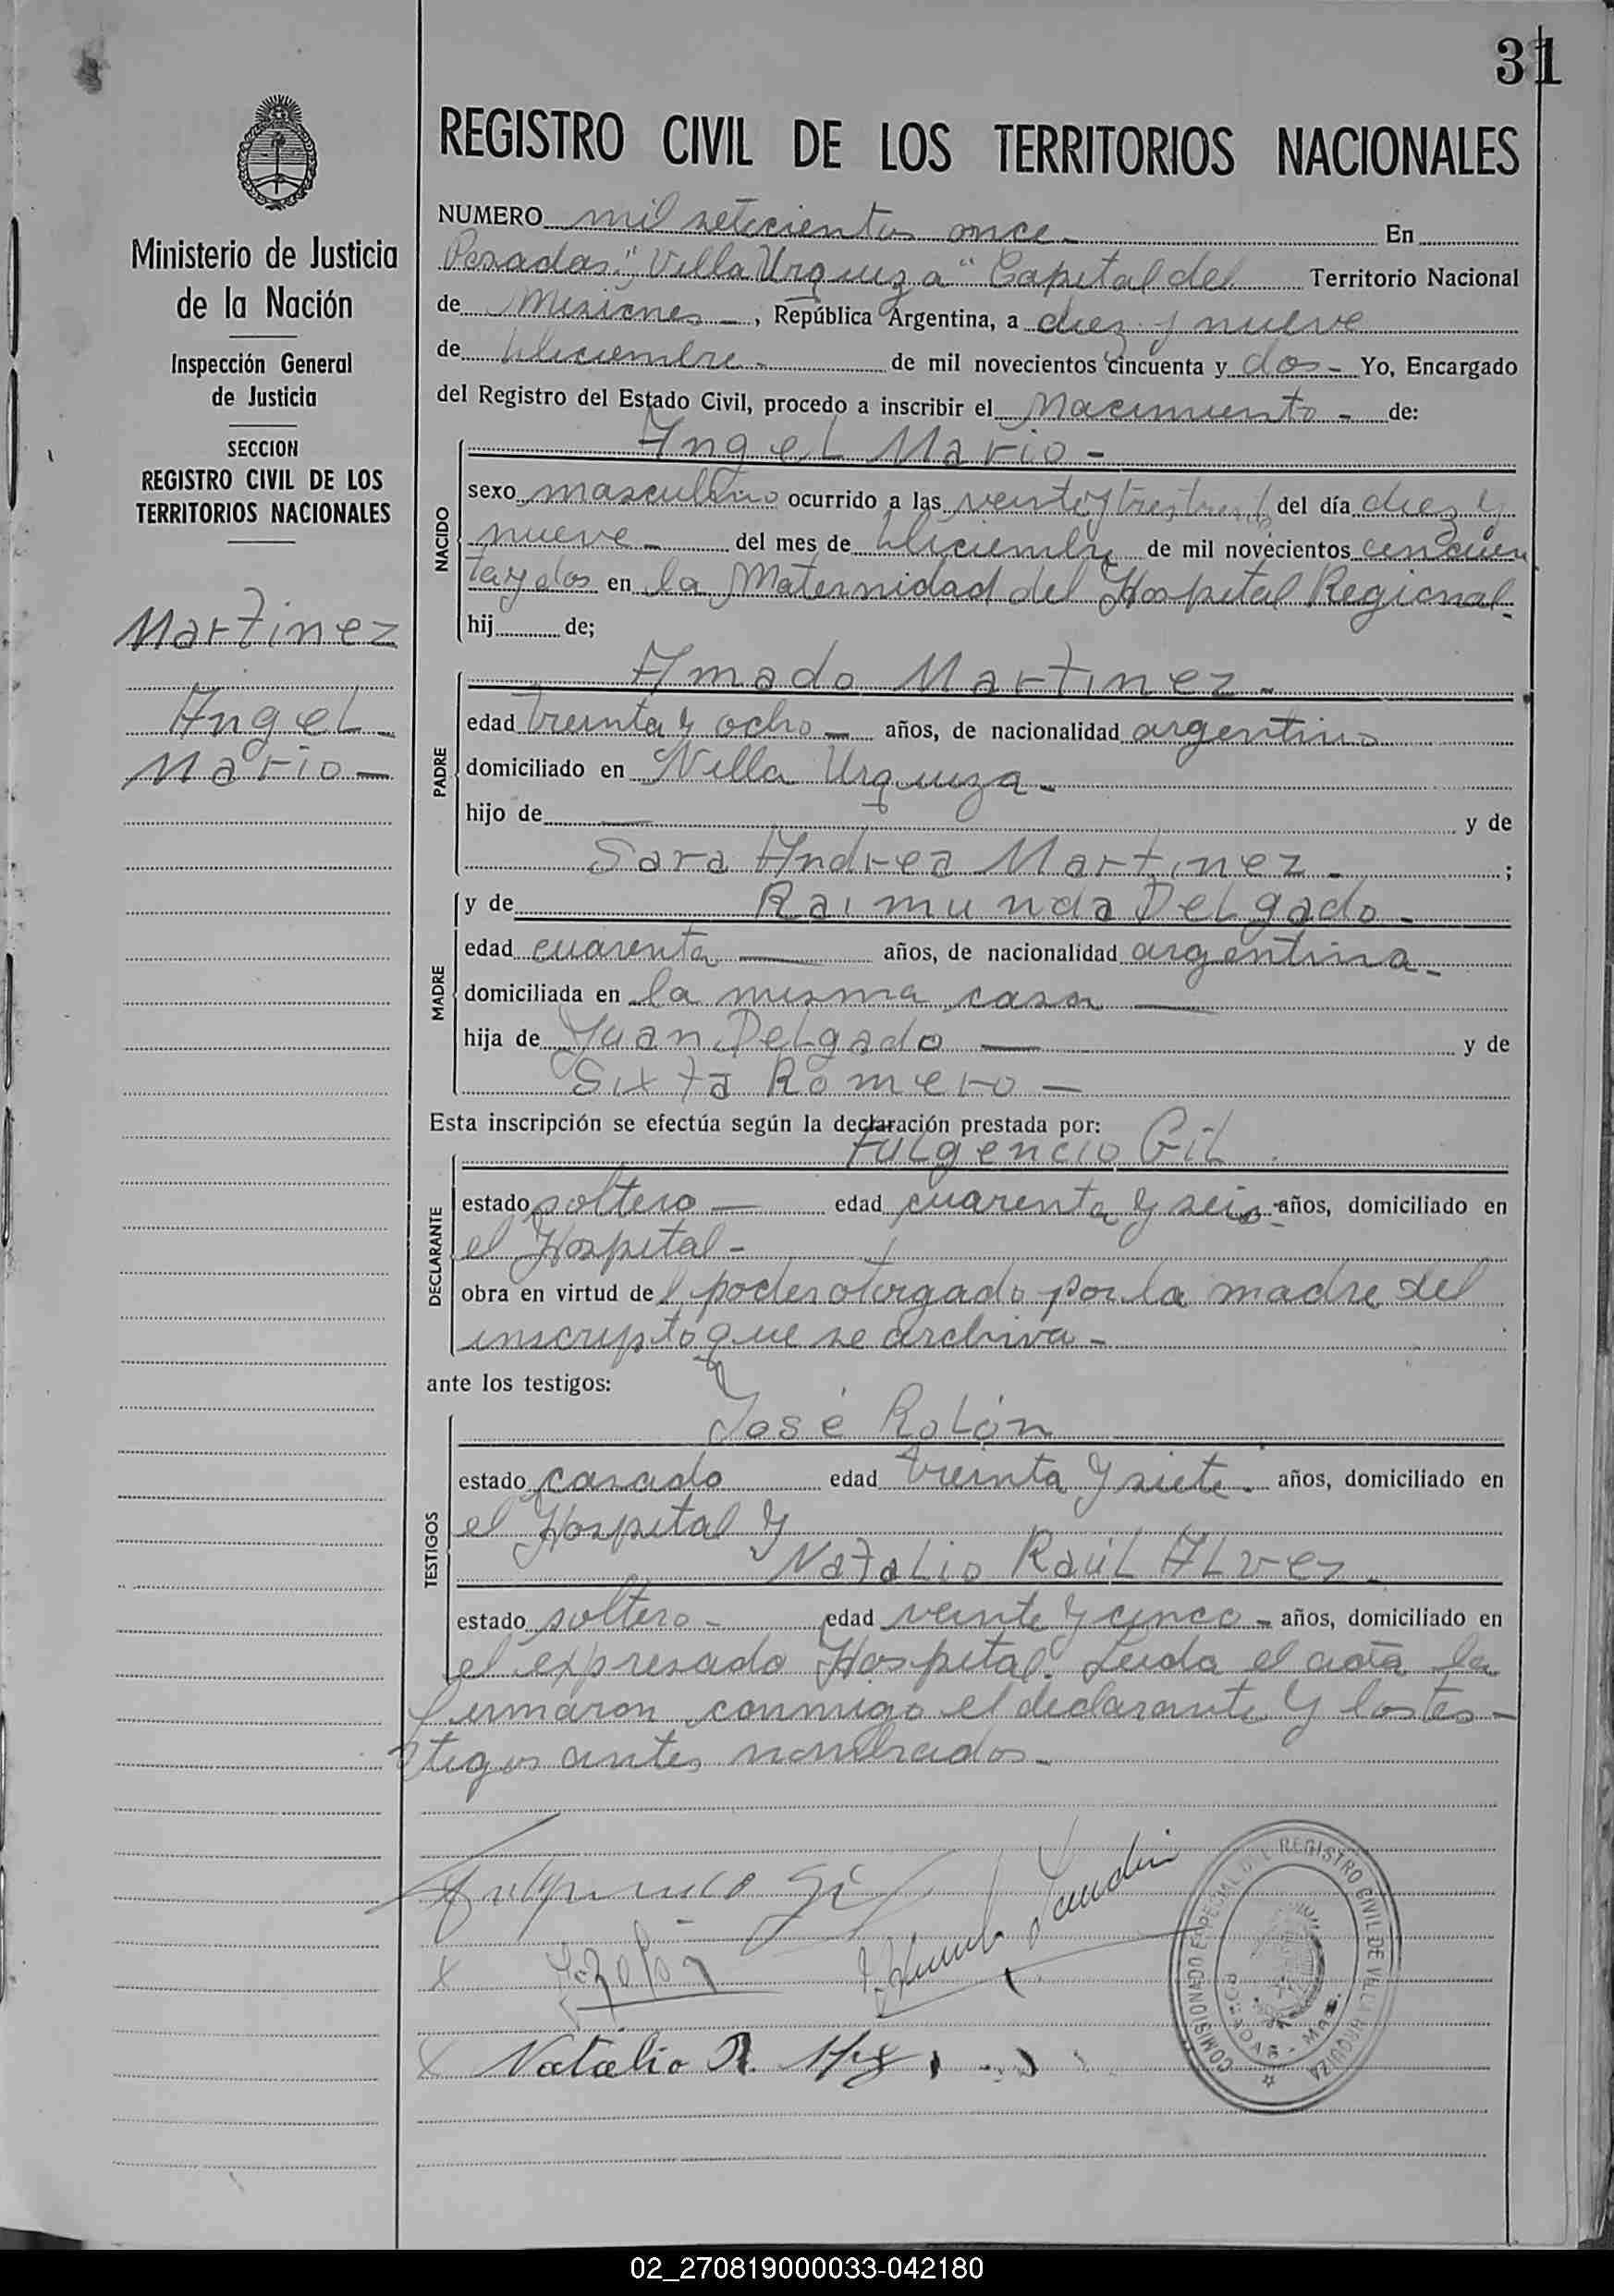 31
REGISTRO CIVIL DE LOS TERRITORIOS NACIONALES
Ministerio de Justicia
de la Nación
Inspección General
de Justicia
SECCION
REGISTRO CIVIL DE LOS
TERRITORIOS NACIONALES
Martinez
Angel
Mario
NUMERO mil setecientos once En
Posadas "Villa Urquiza" Capital del Territorio Nacional
de Misiones, República Argentina, a diez y nueve
de Diciembre de mil novecientos cincuenta y dos Yo, Encargado
del Registro del Estado Civil, procedo a inscribir el Nacimiento de:
Angel Mario
NACIDO
sexo masculino ocurrido a las veinte y tres del día diez y
nueve del mes de Diciembre de mil novecientos cincuen
ta y dos en la Maternidad del Hospital Regional
hij de;
PADRE
Amado Martinez
edad treinta y ocho años, de nacionalidad argentino
domiciliado en Villa Urquiza
hijo de — y de
Sara Andrea Martinez ;
MADRE
y de Raimunda Delgado
edad cuarenta años, de nacionalidad argentina
domiciliada en la misma casa
hija de Juan Delgado — y de
Sixta Romero —
Esta inscripción se efectúa según la declaración prestada por:
DECLARANTE
Fulgencio Gil
estado soltero edad cuarenta y seis años, domiciliado en
el Hospital
obra en virtud del poder otorgado por la madre del
inscripto que se archiva
ante los testigos:
TESTIGOS
José Rolón
estado casado edad treinta y siete años, domiciliado en
el Hospital y
Natalio Raúl Alvez
estado soltero edad veinte y cinco años, domiciliado en
el expresado Hospital. Leida el acta la
firmaron conmigo el declarante y los tes-
tigos antes nombrados
Fulgencio Gil
J. Rolón
Natalio R.
COMISIONADO ESPECIAL DEL REGISTRO CIVIL DE VILLA URQUIZA
POSADAS - MNES.
02_270819000033-042180